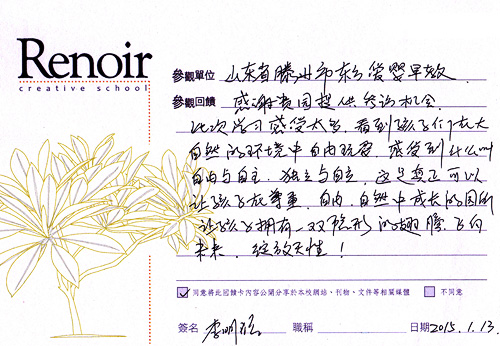 Renoir
creative school
參觀單位 山东省滕州市东方爱婴早教
參觀回饋 感谢贵园提供参访机会
此次学习感受太多，看到孩子们在大
自然的环境中自由玩耍，感受到什么叫
自由与自主，独立与自立，这是真正可以
让孩子在尊重，自由，自然中成长的园所
让孩子拥有一双隐形的翅膀，飞向
未来，绽放天性！
同意將此回饋卡內容公開分享於本校網站、刊物、文件等相關媒體 不同意
簽名 李明 職稱 日期 2015.1.13.